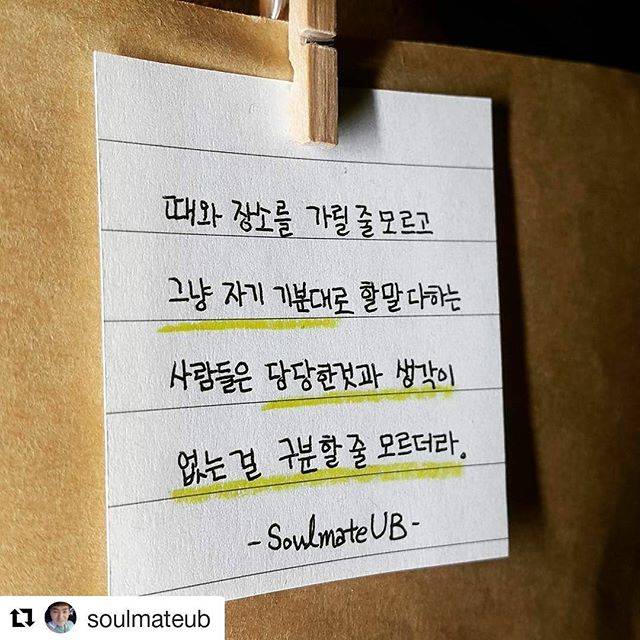 때와 장소를 가릴 줄 모르고
그냥 자기 기분대로 할말 다하는
사람들은 당당한것과 생각이
없는 걸 구분할 줄 모르더라.
-SoulmateUB-
soulmateub